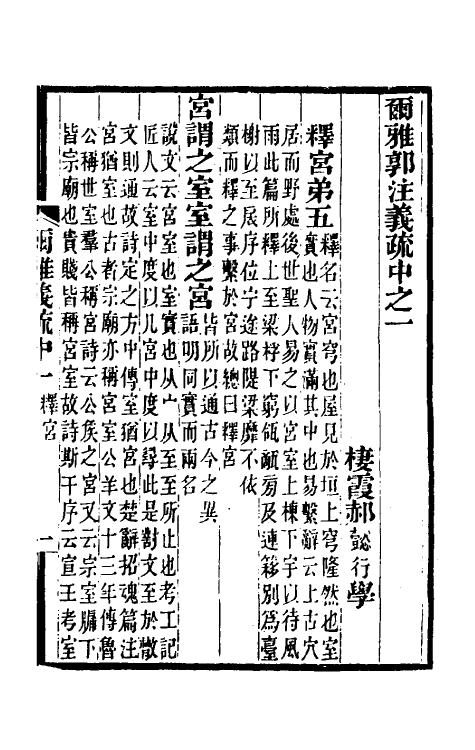 爾雅郭注義疏中之一
棲霞郝懿行學
釋宮弟五
釋名云宮穹也屋見於垣上穹隆然也室
實也人物實滿其中也易繫辭云上古穴
居而野處後世聖人易之以宮室上棟下宇以待風
雨此篇所釋上至梁桴下窮瓴甋㫄及連簃別為臺
榭以至扆序位宁途路隄梁靡不依
類而釋之事繫於宮故總曰釋宮
宮謂之室室謂之宮
皆所以通古今之異
語明同實而兩名
說文云宮室也室實也从宀从至至所止也考工記
匠人云室中度以几宮中度以尋此是對文至於散
文則通故詩定之方中傳室猶宮也楚辭招魂篇注
宮猶室也古者宗廟亦稱宮室公羊文十三年傳魯
公稱世室羣公稱宮詩云公矦之宮又云宗室牖下
皆宗廟也貴賤皆稱宮室故詩斯干序云宣王考室
爾雅義疏中一 釋宮
一